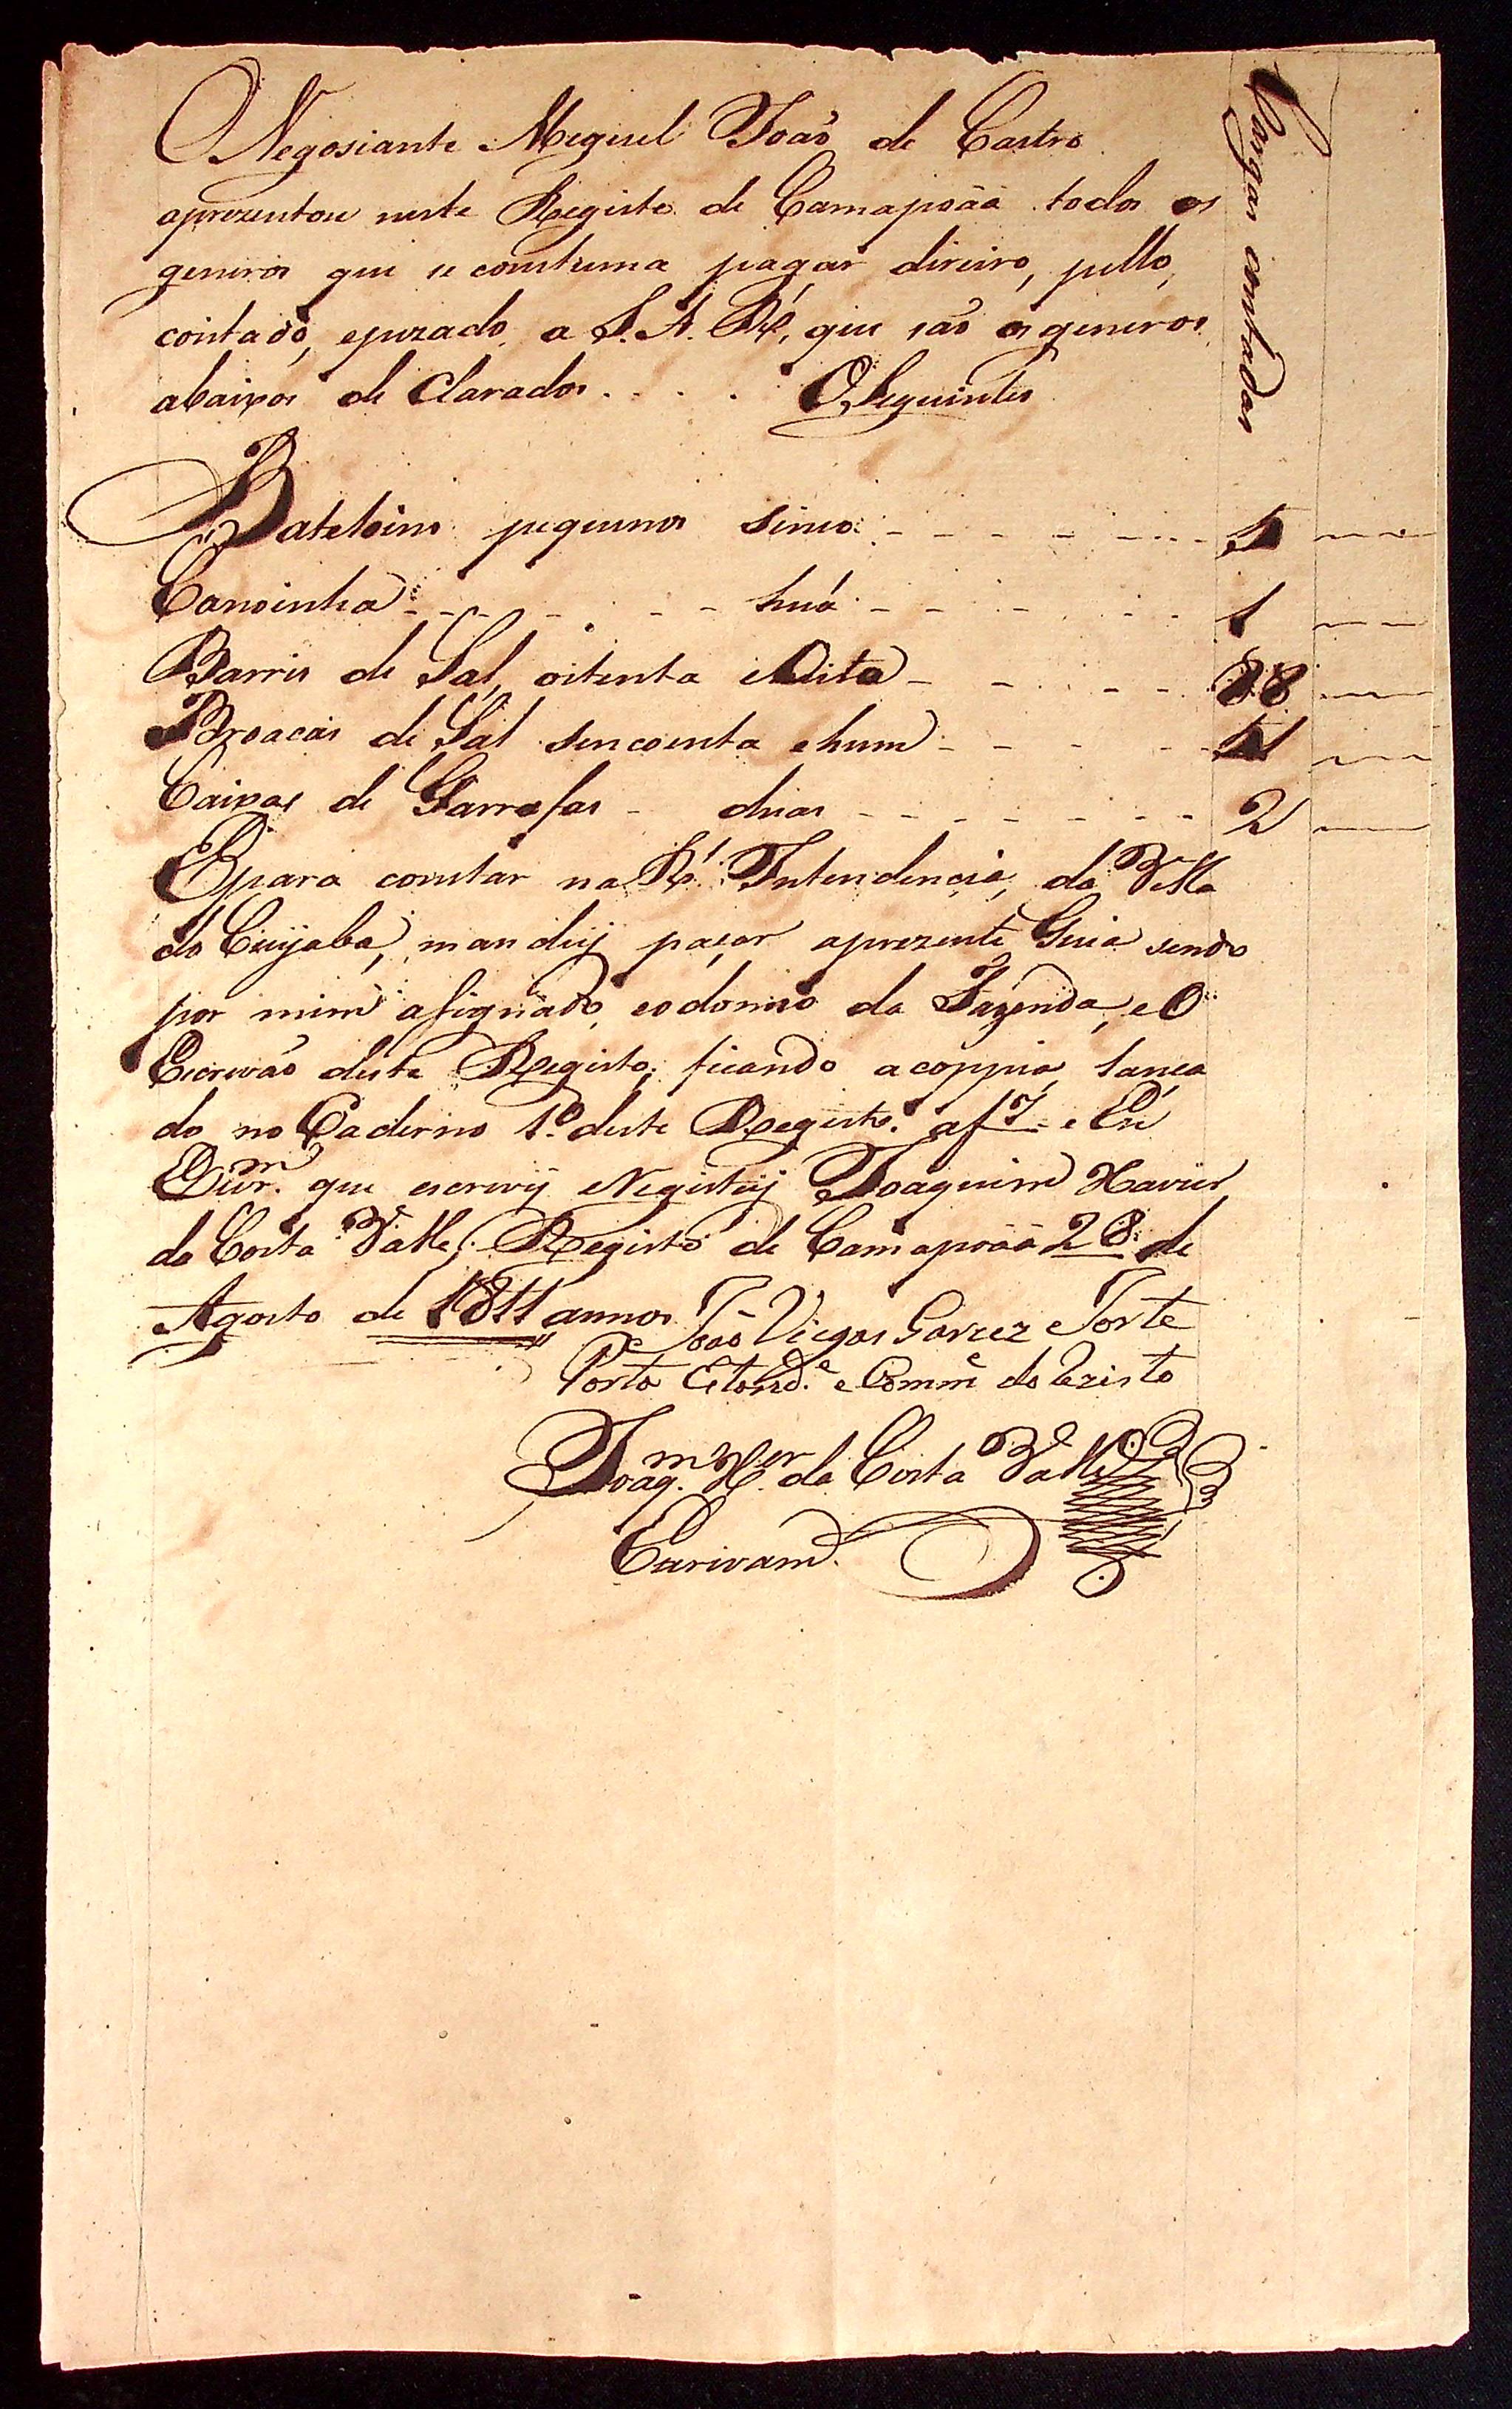 O Negosiante Meguel João de Castro
aprezentou neste Registo de Camapoãã todos os
generos que se comstuma pagar direiro, pello,
contado, e puzado, a S. A. Rˡ, que são os generos
abaixos de Clarados . . . . OSeguintes
Cargas contadas
Bateloins pequenos sinco 5
Canoinha huá 1
Barris de Sal, oitenta e Oito 88
Broacas de Sal sencoenta e hum 51
Caixas de Garrafas duas 2
E para constar na Rˡ Intendencia, da Villa
do Cuyaba, man deij paçar aprezente Guia sendo
por mim asignado, eo domno da Fazenda, e O
Escrivão deste Registo; ficando a coppia, lança
do no Caderno 1º deste Registo. af 7 e Eu
que escrevij e Registeij Joaquim Xavier
da Costa Valle. Registo de Camapoãã 28 de
Agosto de 1811 annos
João Viegas Forte
Porto e Comm.e do Rezisto
Joaq.m X.er da Costa Valle
Escrivam